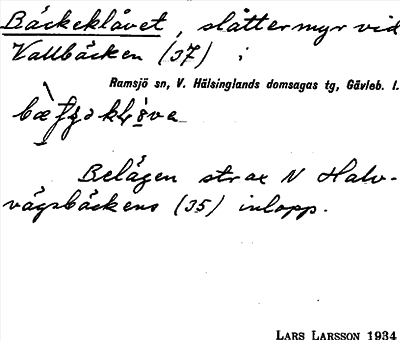 Bäckeklåvet, slåttermyr vid
Vallbäcken (37) ;
Ramsjö sn, V. Hälsinglands domsagas tg, Gävleb. l.
Belägen strax N Halv-
vägsbäckens (35) inlopp.
LARS LARSSON 1934